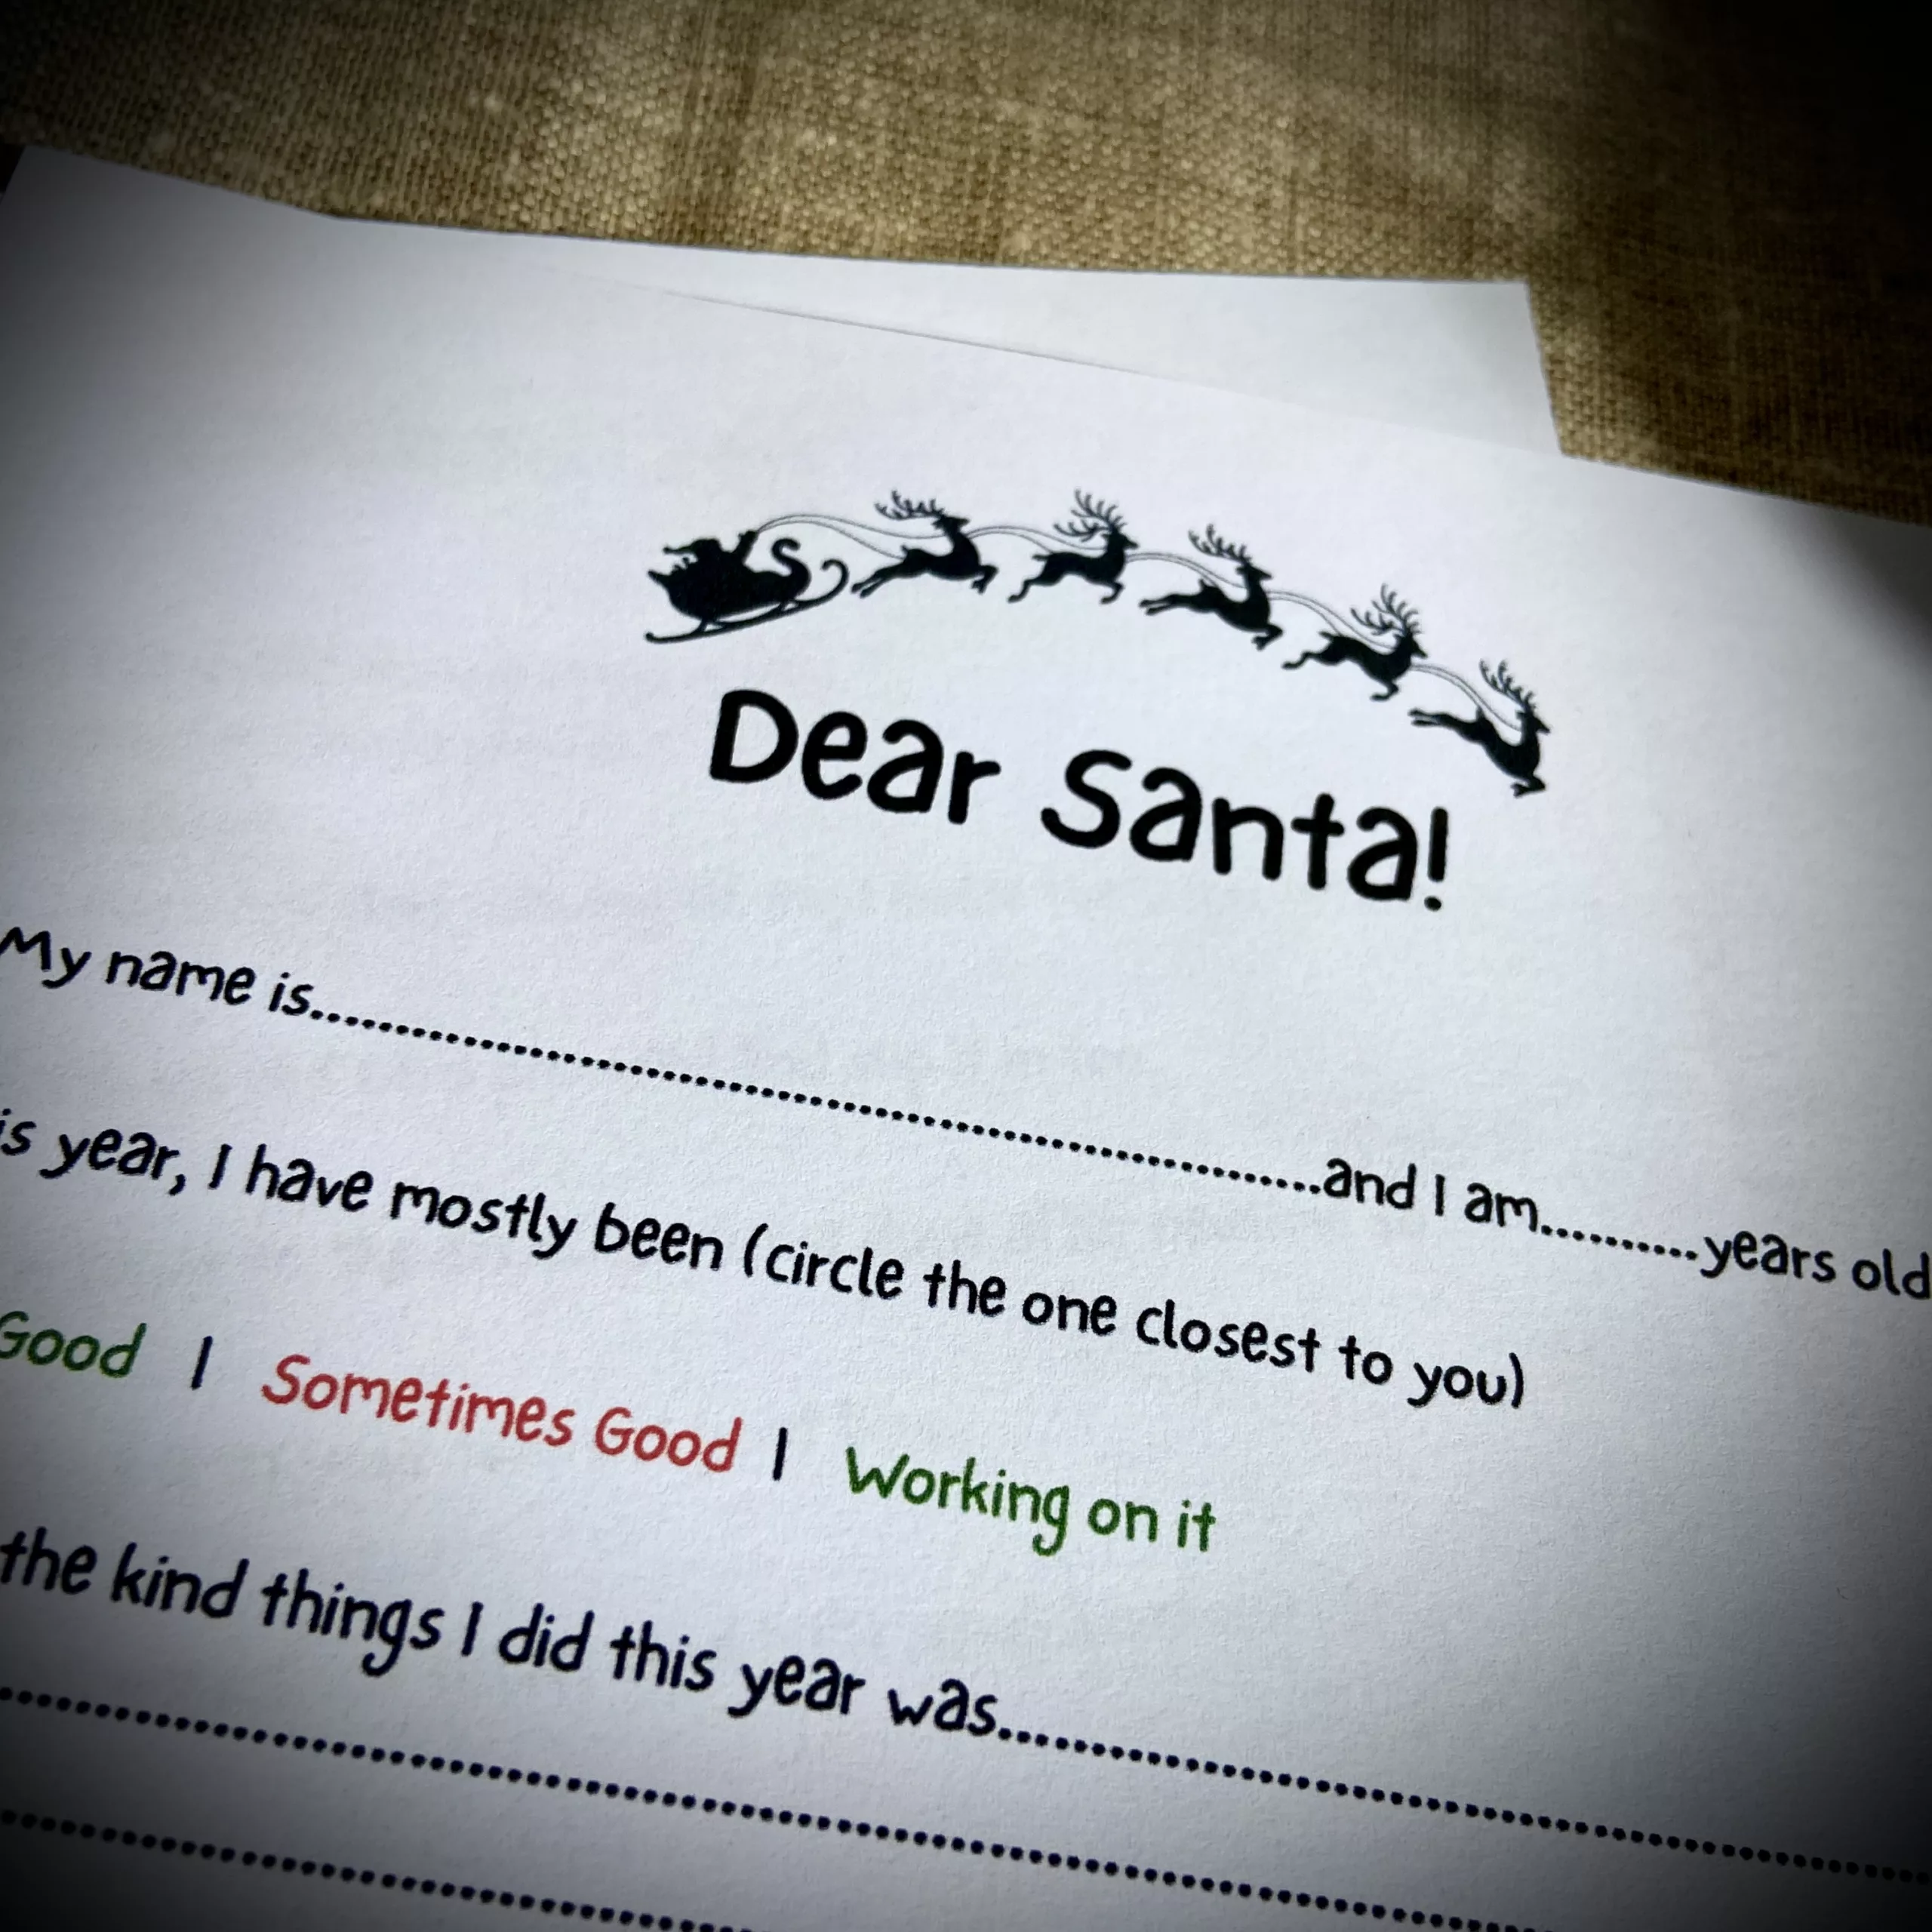 Dear Santa!
My name is....................................................................................and I am..........years old
is year, I have mostly been (circle the one closest to you)
Good | Sometimes Good | Working on it
the kind things I did this year was..............................................................